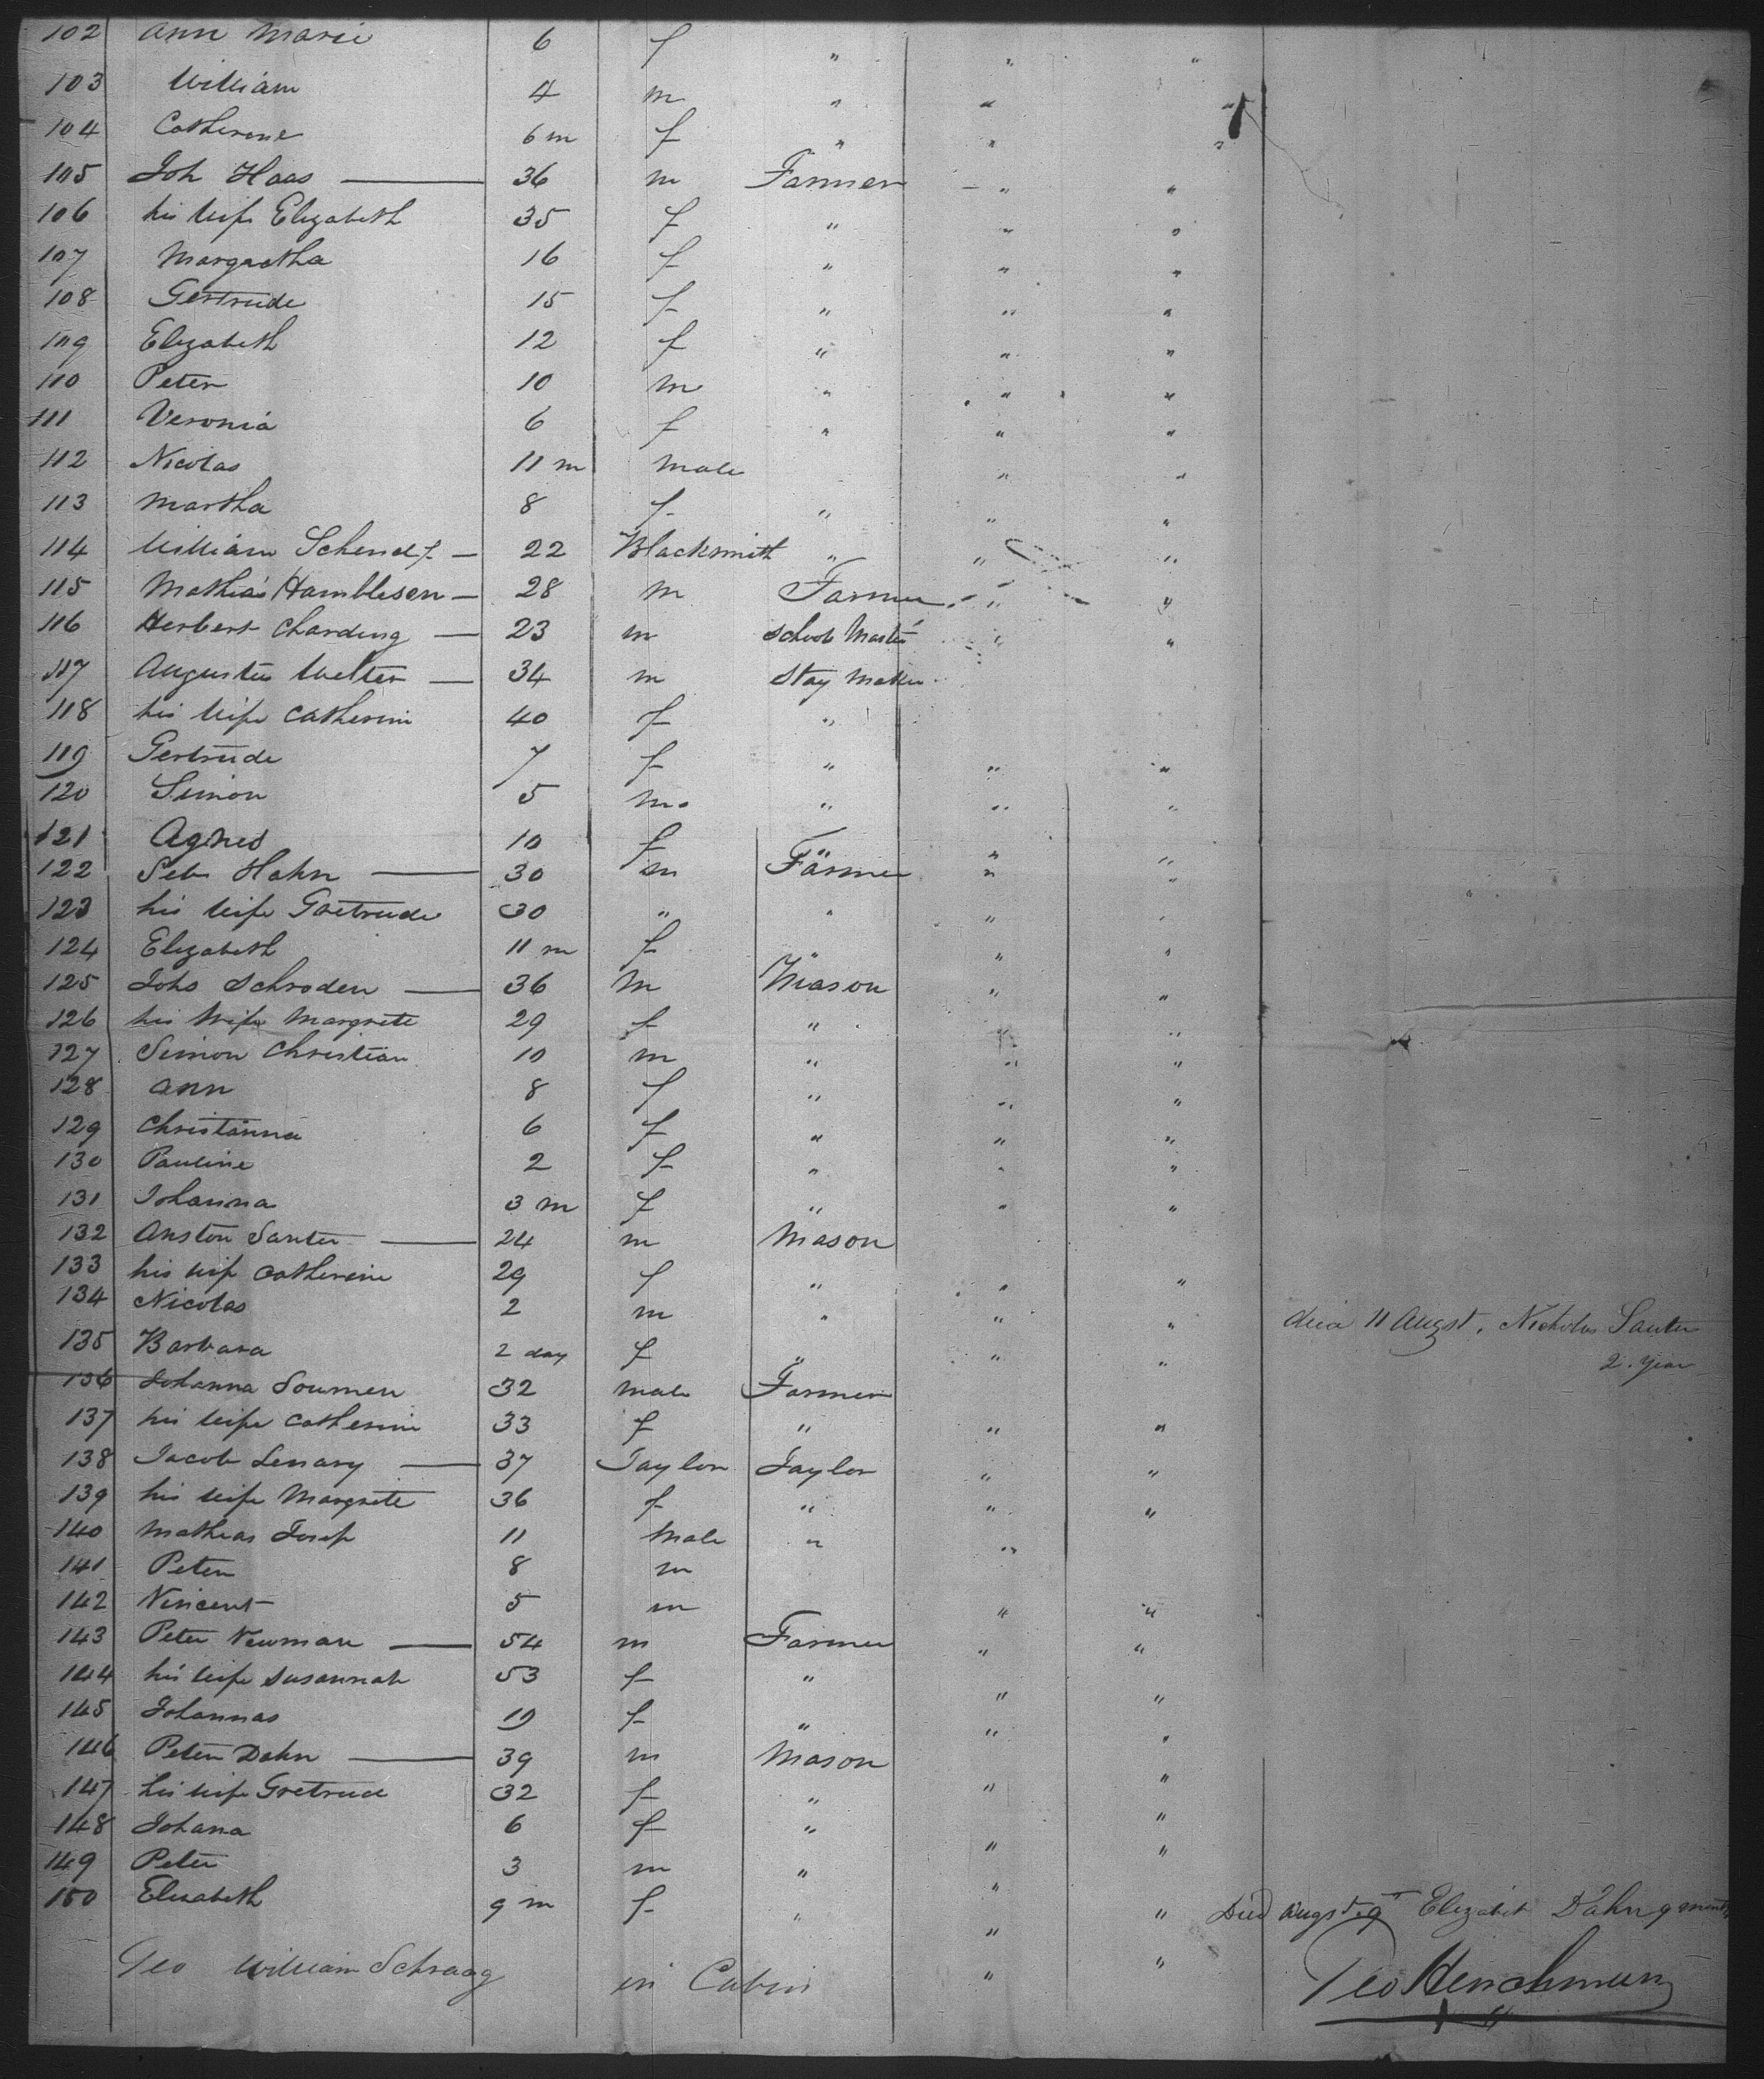 102 Ann Marie 6 f " " "
103 William 4 m " " "
104 Catherene 6 m f " " "
105 Joh Haas — 36 m Farmer " "
106 his Wife Elizabeth 35 f " " "
107 Margretha 16 f " " "
108 Gertrude 15 f " " "
109 Elizabeth 12 f " " "
110 Peter 10 m " " "
111 Veronia 6 f " " "
112 Nicolas 11 m male " "
113 Martha 8 f " " "
114 William — 22 Blacksmith " " "
115 Mathias Hamblesen — 28 m Farmer " "
116 Herbert Charding — 23 m School Master " "
117 Augustus Welter — 34 m Stay Maker
118 his Wife Catherine 40 f "
119 Gertrude 7 f " " "
120 Simon 5 m. " " "
121 Agnes 10 f " " "
122 Seb Hahn — 30 m Farmer " "
123 his Wife Gretrude 30 " " " "
124 Elizabeth 11 m f " " "
125 Johs Schroden — 36 m Mason " "
126 his Wife Margrete 29 f " " "
127 Simon Christian 10 m " " "
128 Ann 8 f " " "
129 Christianna 6 f " " "
130 Pauline 2 f " " "
131 Johanna 3 m f " " "
132 Anston Sauter — 24 m Mason
133 his wife Catherine 29 f " " "
134 Nicolas 2 m " " " died 11 Augst. Nicholas Sauter
2. year
135 Barbara 2 day f " " "
136 Johanna Soumen 32 male Farmer
137 his Wife Catherine 33 f " " "
138 Jacob Lenary — 37 Taylor Taylor " "
139 his Wife Margrete 36 f " " "
140 Mathias Josep 11 Male " "
141 Peter 8 m
142 Vincent 5 m " "
143 Peter Newman — 54 m Farmer " "
144 his Wife Susannah 53 f " " "
145 Johannas 19 f " " "
146 Peter Dahn — 39 m Mason
147 his Wife Gretrude 32 f " " "
148 Johana 6 f " "
149 Peter 3 m " " "
150 Elisabeth 9 m f " " " Died Augst 9 Elizabet Dahn 9 month
Geo William Schraag in Cabin " "
Geo Henchman